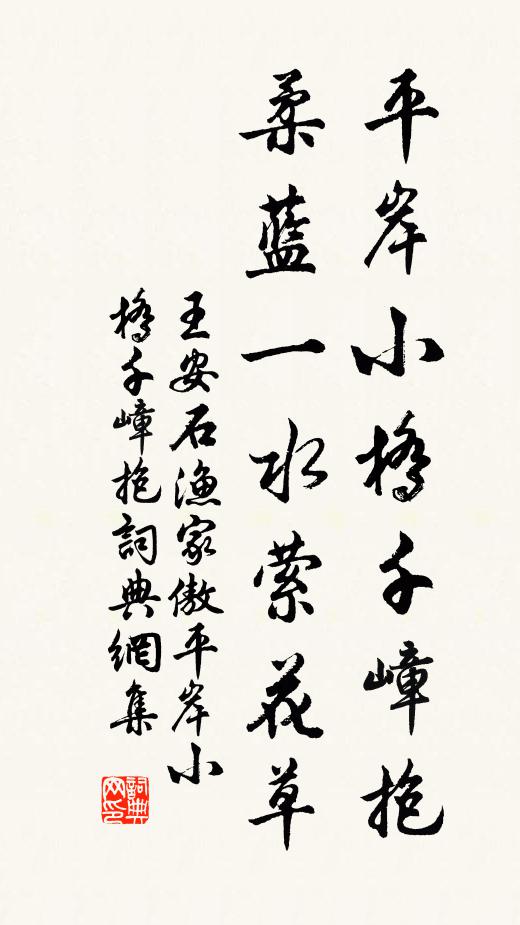 平岸小橋千嶂抱
柔藍一水萦花草
王安石漁家傲平岸小
橋千嶂抱詞典網集
詞典
网印